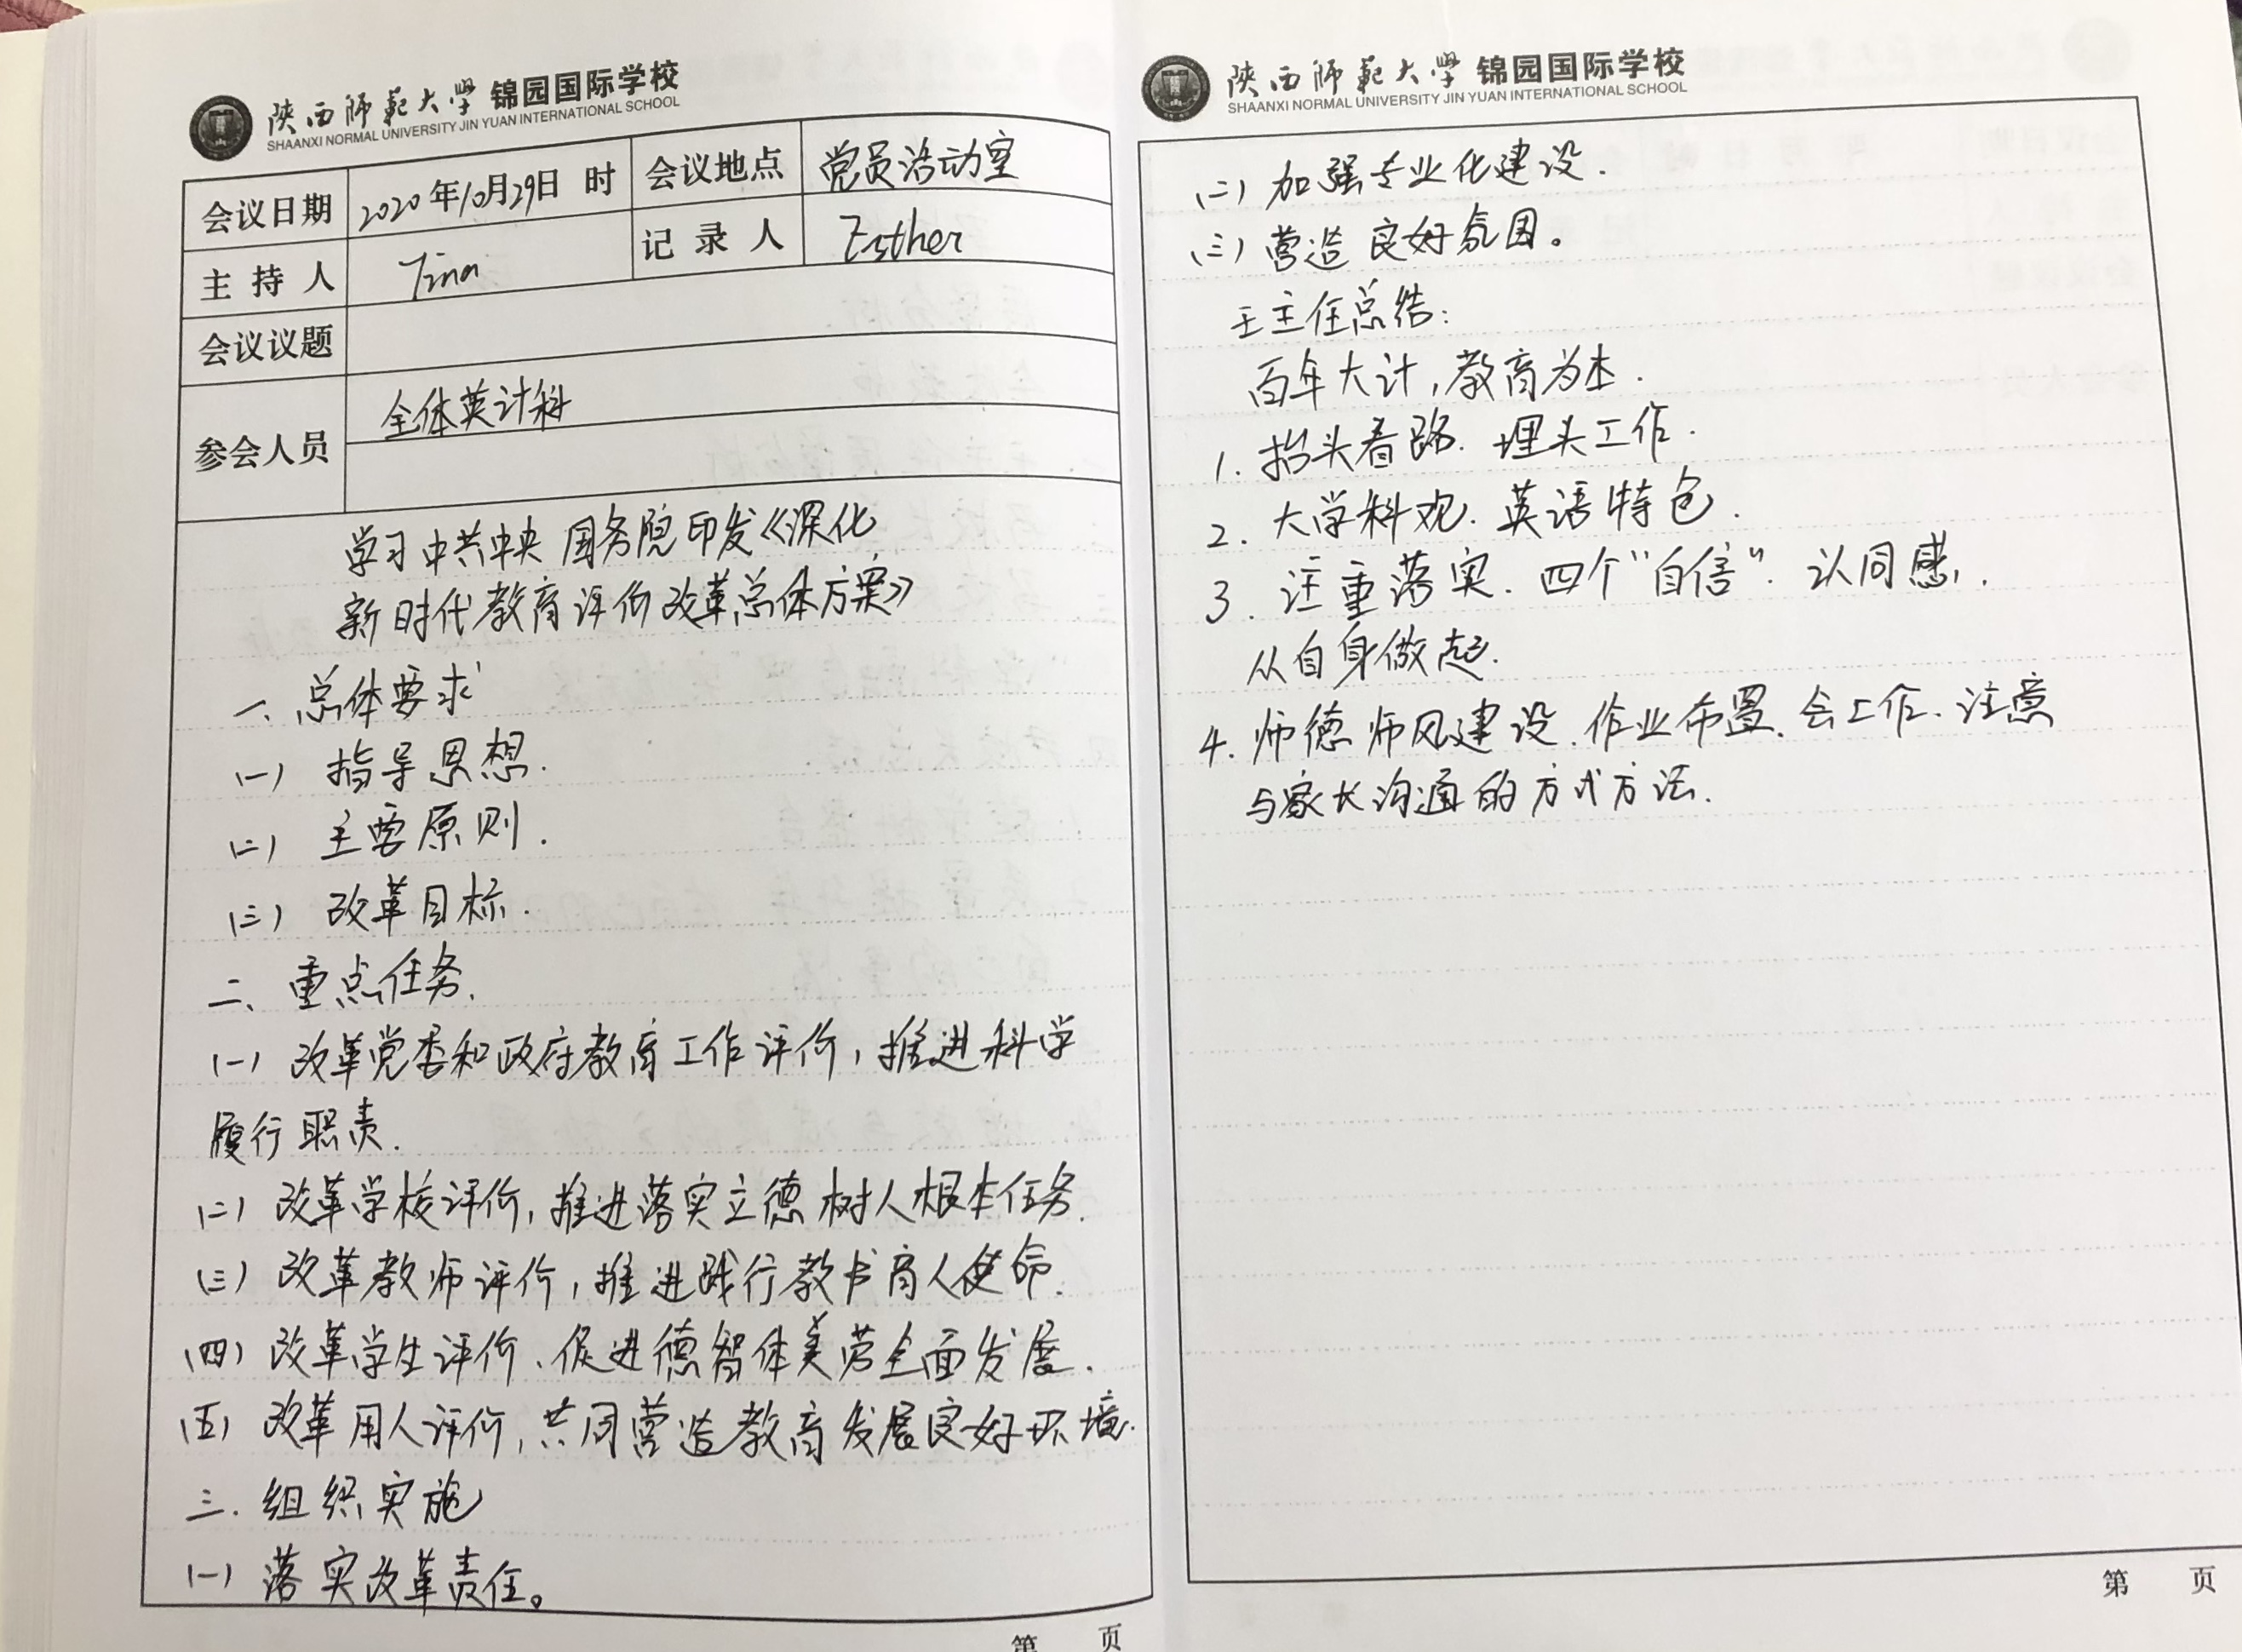 陕西师范大学 锦园国际学校
SHAANXI NORMAL UNIVERSITY JIN YUAN INTERNATIONAL SCHOOL
会议日期 2020年10月29日 时 会议地点 党员活动室
主持人 Tina 记录人 Esther
会议议题
参会人员 全体英计科
学习中共中央 国务院印发《深化
新时代教育评价改革总体方案》
一、总体要求
(一) 指导思想.
(二) 主要原则.
(三) 改革目标.
二、重点任务.
(一) 改革党委和政府教育工作评价,推进科学
履行职责.
(二) 改革学校评价,推进落实立德树人根本任务.
(三) 改革教师评价,推进践行教书育人使命.
(四) 改革学生评价、促进德智体美劳全面发展.
(五) 改革用人评价,共同营造教育发展良好环境.
三.组织实施
(一) 落实改革责任。
第 页
陕西师范大学 锦园国际学校
SHAANXI NORMAL UNIVERSITY JIN YUAN INTERNATIONAL SCHOOL
(二) 加强专业化建设.
(三) 营造良好氛围。
王主任总结:
百年大计,教育为本.
1. 抬头看路. 埋头工作.
2. 大学科观. 英语特色.
3. 注重落实. 四个“自信”. 认同感.
从自身做起.
4. 师德师风建设.作业布置.会工作.注意
与家长沟通的方式方法.
第 页